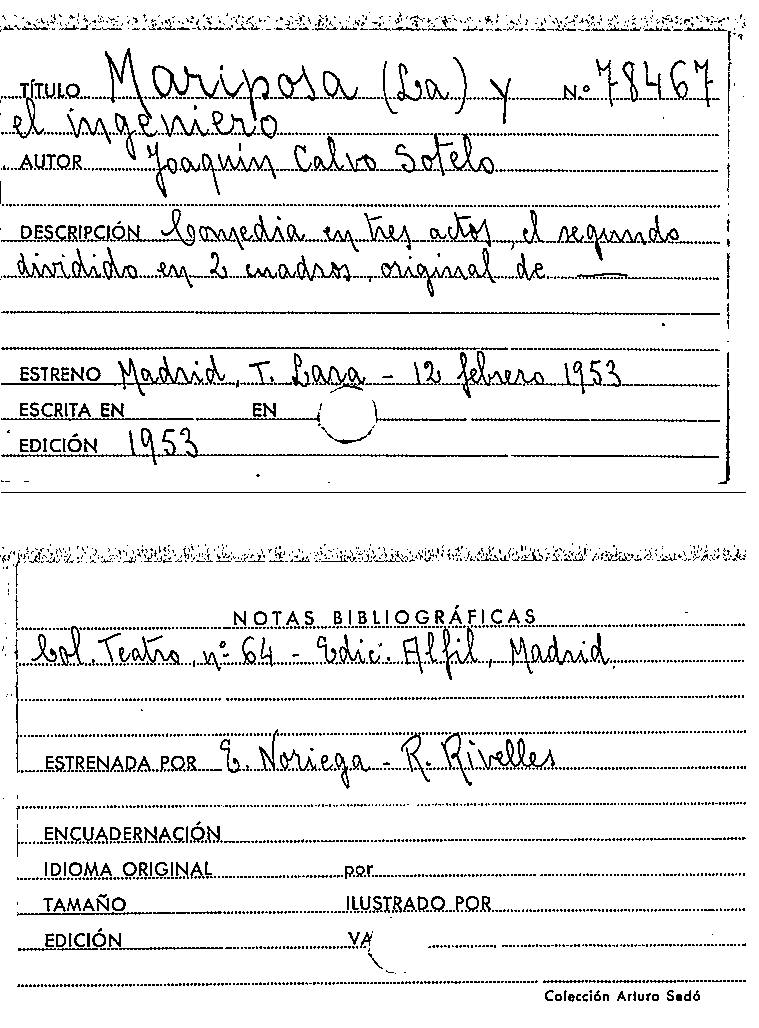 TÍTULO Mariposa (La) y N.º 78467
el ingeniero
AUTOR Joaquín Calvo Sotelo
DESCRIPCIÓN Comedia en tres actos, el segundo
dividido en 2 cuadros, original de —
ESTRENO Madrid, T. Lara - 12 febrero 1953
ESCRITA EN EN
EDICIÓN 1953
NOTAS BIBLIOGRÁFICAS
Col. Teatro, nº 64 - Edic. Alfil, Madrid.
ESTRENADA POR E. Noriega - R. Rivelles
ENCUADERNACIÓN
IDIOMA ORIGINAL por
TAMAÑO ILUSTRADO POR
EDICIÓN VA
Colección Arturo Sedó